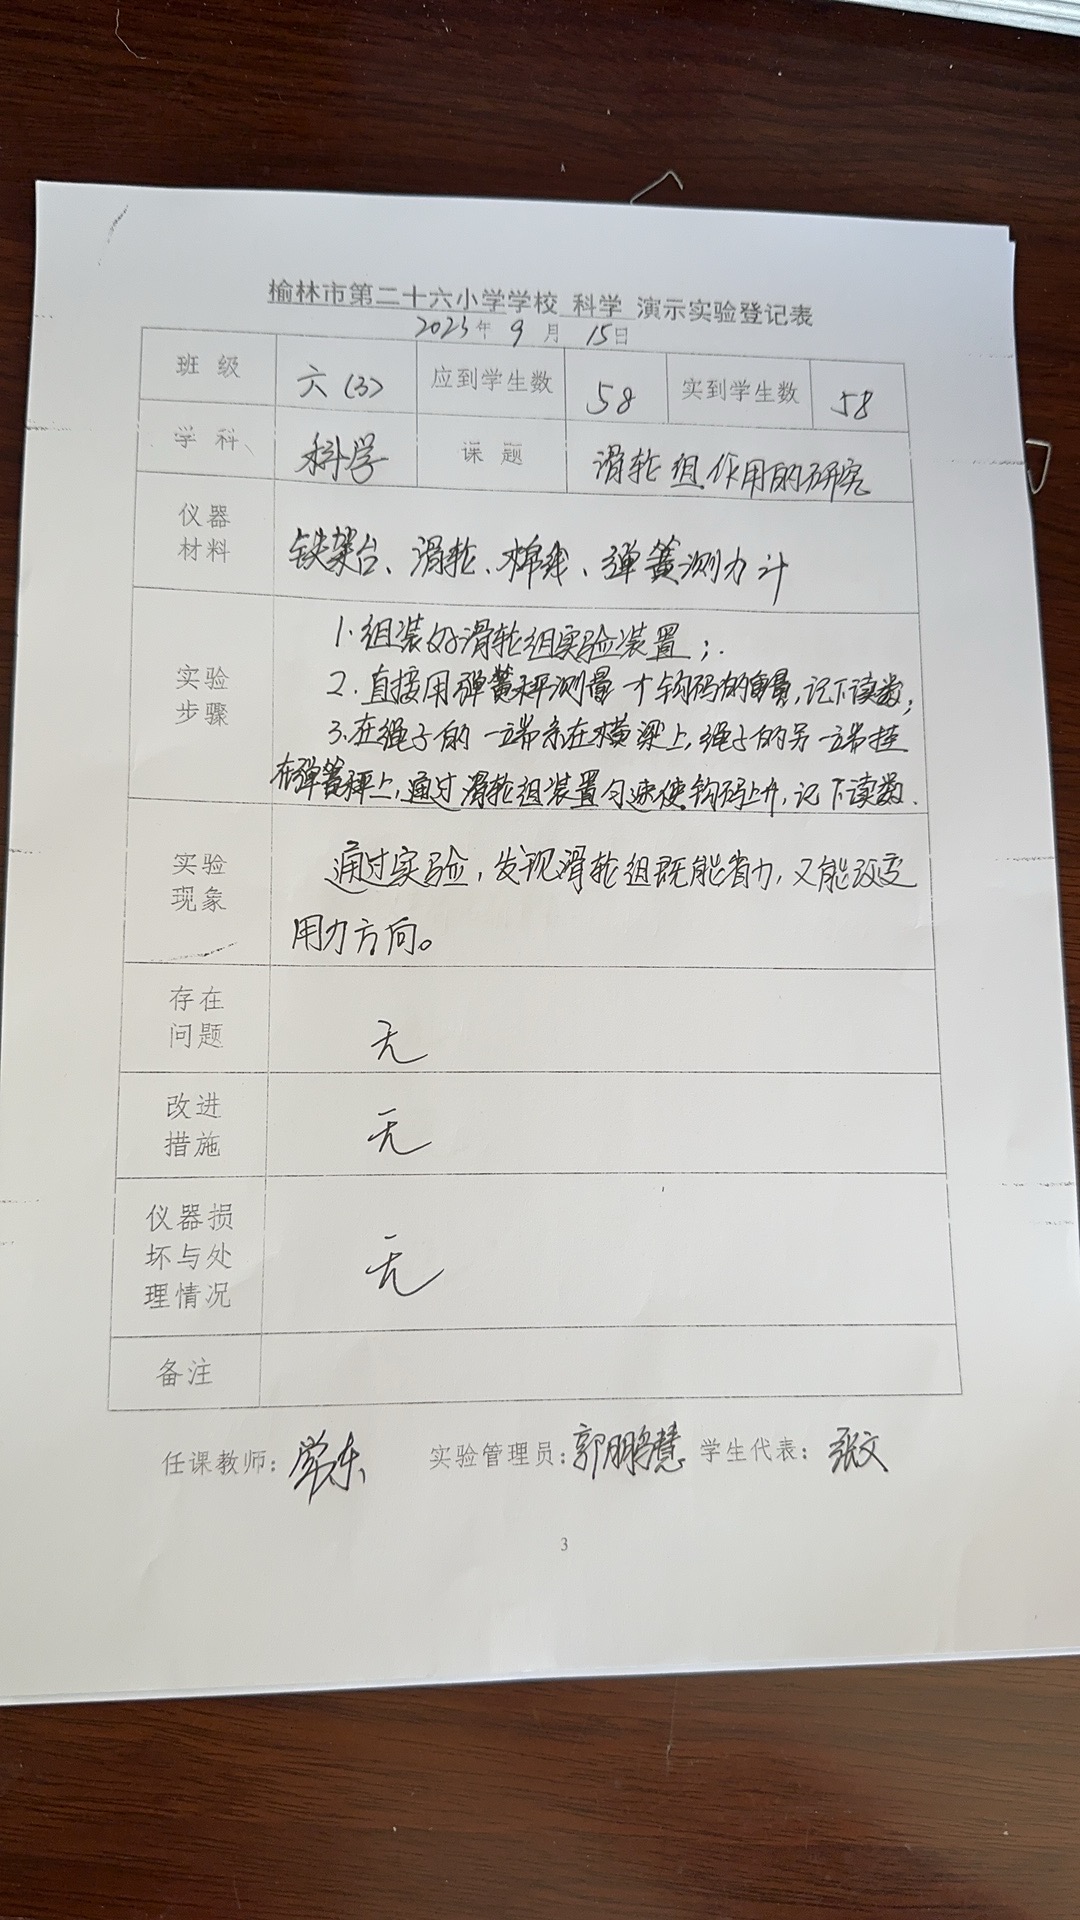 榆林市第二十六小学学校 科学 演示实验登记表
2023年 9 月 15日
班 级 六(3) 应到学生数 58 实到学生数 58
学 科 科学 课 题 滑轮组作用的研究
仪器
材料
铁架台、滑轮、棉线、弹簧测力计
实验
步骤
1.组装好滑轮组实验装置;
2.直接用弹簧秤测量一个钩码的重量,记下读数;
3.在绳子的一端系在横梁上,绳子的另一端挂
在弹簧秤上,通过滑轮组装置匀速使钩码上升,记下读数.
实验
现象
通过实验,发现滑轮组既能省力,又能改变
用力方向。
存在
问题
无
改进
措施
无
仪器损
坏与处
理情况
无
备注
任课教师: 实验管理员:郭鹏慧 学生代表:张文
3